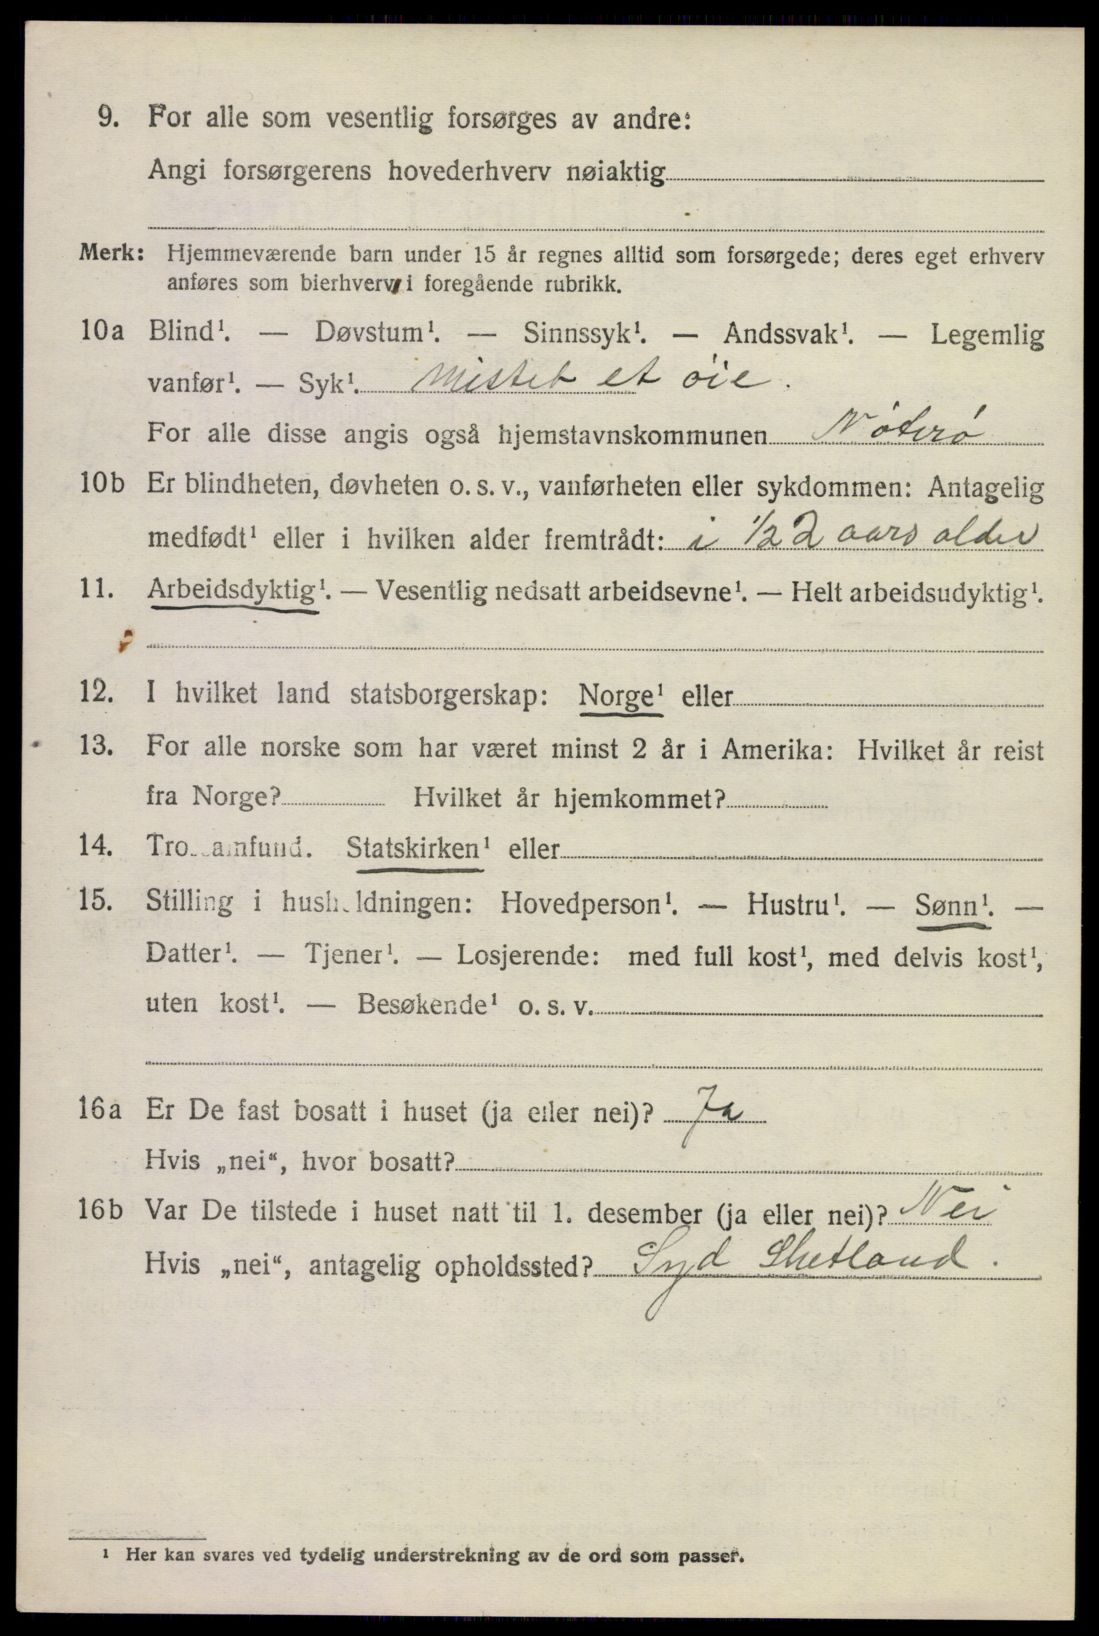 9. For alle som vesentlig forsørges av andre:
Angi forsørgerens hovederhverv nøiaktig
Merk: Hjemmeværende barn under 15 år regnes alltid som forsørgede; deres eget erhverv
anføres som bierhverv i foregående rubrikk.
10a Blind¹. — Døvstum¹. — Sinnssyk¹. — Andssvak¹. — Legemlig
vanfør¹. — Syk¹. Mistet et öie.
For alle disse angis også hjemstavnskommunen Nöterö
10b Er blindheten, døvheten o. s. v., vanførheten eller sykdommen: Antagelig
medfødt¹ eller i hvilken alder fremtrådt: i ½ 2 aars alder
11. Arbeidsdyktig¹. — Vesentlig nedsatt arbeidsevne¹. — Helt arbeidsudyktig¹.
12. I hvilket land statsborgerskap: Norge¹ eller
13. For alle norske som har været minst 2 år i Amerika: Hvilket år reist
fra Norge? Hvilket år hjemkommet?
14. Trossamfund. Statskirken¹ eller
15. Stilling i husholdningen: Hovedperson¹. — Hustru¹. — Sønn¹. —
Datter¹. — Tjener¹. — Losjerende: med full kost¹, med delvis kost¹,
uten kost¹. — Besøkende¹ o. s. v.
16a Er De fast bosatt i huset (ja eller nei)? Ja
Hvis „nei“, hvor bosatt?
16b Var De tilstede i huset natt til 1. desember (ja eller nei)? Nei
Hvis „nei“, antagelig opholdssted? Syd Shetland.
¹ Her kan svares ved tydelig understrekning av de ord som passer.